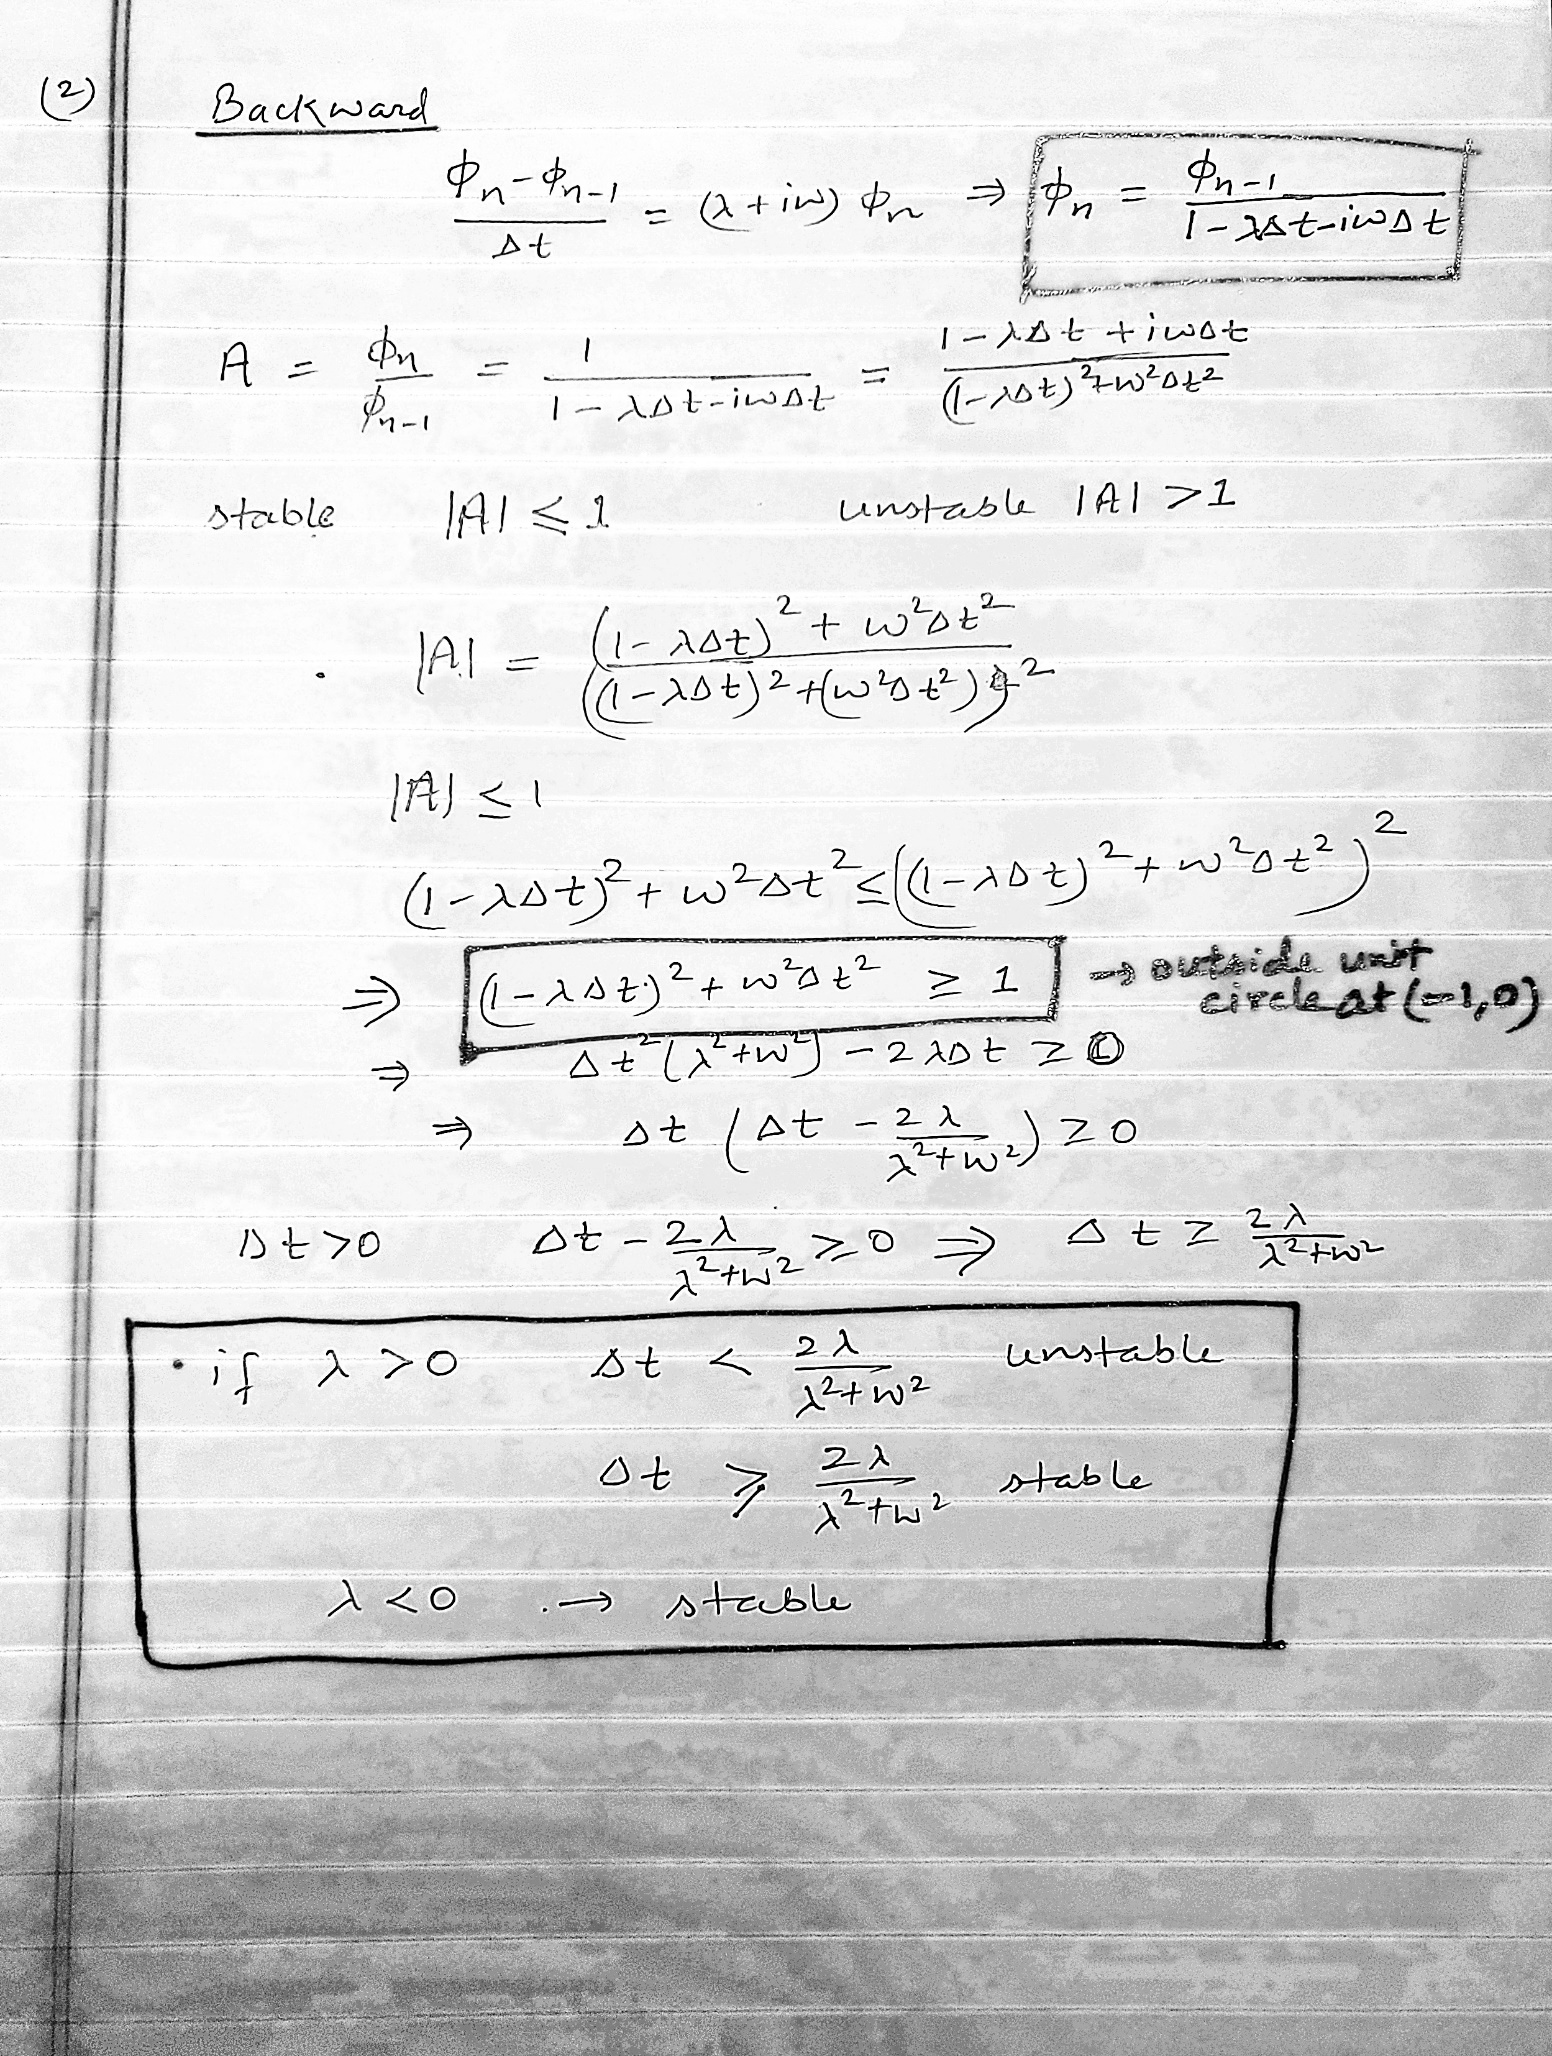 (2) Backward
(ϕn - ϕn-1)/Δt = (λ + iω) ϕn ⇒ ϕn = ϕn-1/(1 - λΔt - iωΔt)
A = ϕn/ϕn-1 = 1/(1 - λΔt - iωΔt) = (1 - λΔt + iωΔt)/((1-λΔt)² + ω²Δt²)
stable |A| ≤ 1 unstable |A| > 1
|A| = ((1 - λΔt)² + ω²Δt²)/((1 - λΔt)² + (ω²Δt²))²
|A| ≤ 1
(1 - λΔt)² + ω²Δt² ≤ ((1 - λΔt)² + ω²Δt²)²
⇒ (1 - λΔt)² + ω²Δt² ≥ 1 → outside unit
circle at (-1,0)
⇒ Δt² (λ² + ω²) - 2λΔt ≥ 0
⇒ Δt (Δt - 2λ/(λ² + ω²)) ≥ 0
Δt > 0 Δt - 2λ/(λ² + ω²) ≥ 0 ⇒ Δt ≥ 2λ/(λ² + ω²)
• if λ > 0 Δt < 2λ/(λ² + ω²) unstable
Δt ≥ 2λ/(λ² + ω²) stable
λ < 0 → stable